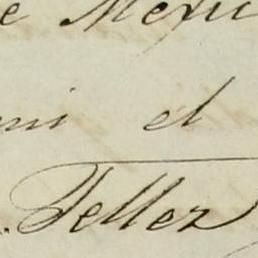 e Mexi
mi el
. Tellez